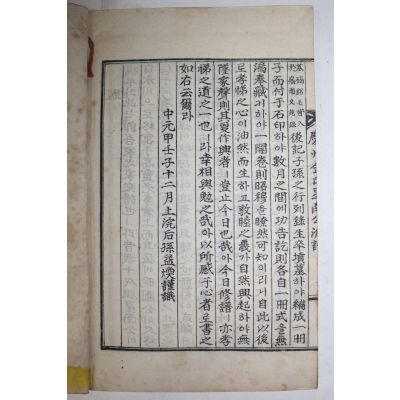 慶州金氏
公派譜
後記子孫之行列錄生卒墳墓하야編成一冊
子而付于石印하야數月之間에功告訖則各自一冊式을無
漏奉藏케하야一開卷則昭穆을瞭然可知이리니自此以後
로孝悌之心이油然而生하고敦睦之義가自然興起하야無
墜家聲則其更作興者ㅣ豈止今日也哉아今日修譜ㅣ亦孝
悌之道之一也ㅣ라幸相與勉之哉아以所感于心者로書之
如右云爾라
中元甲壬子十二月上浣后孫益煥謹識